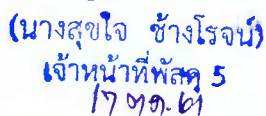 (นางสุขใจ ช้างโรจน์)
เจ้าหน้าที่พัสดุ 5
17 ต.ค. 61